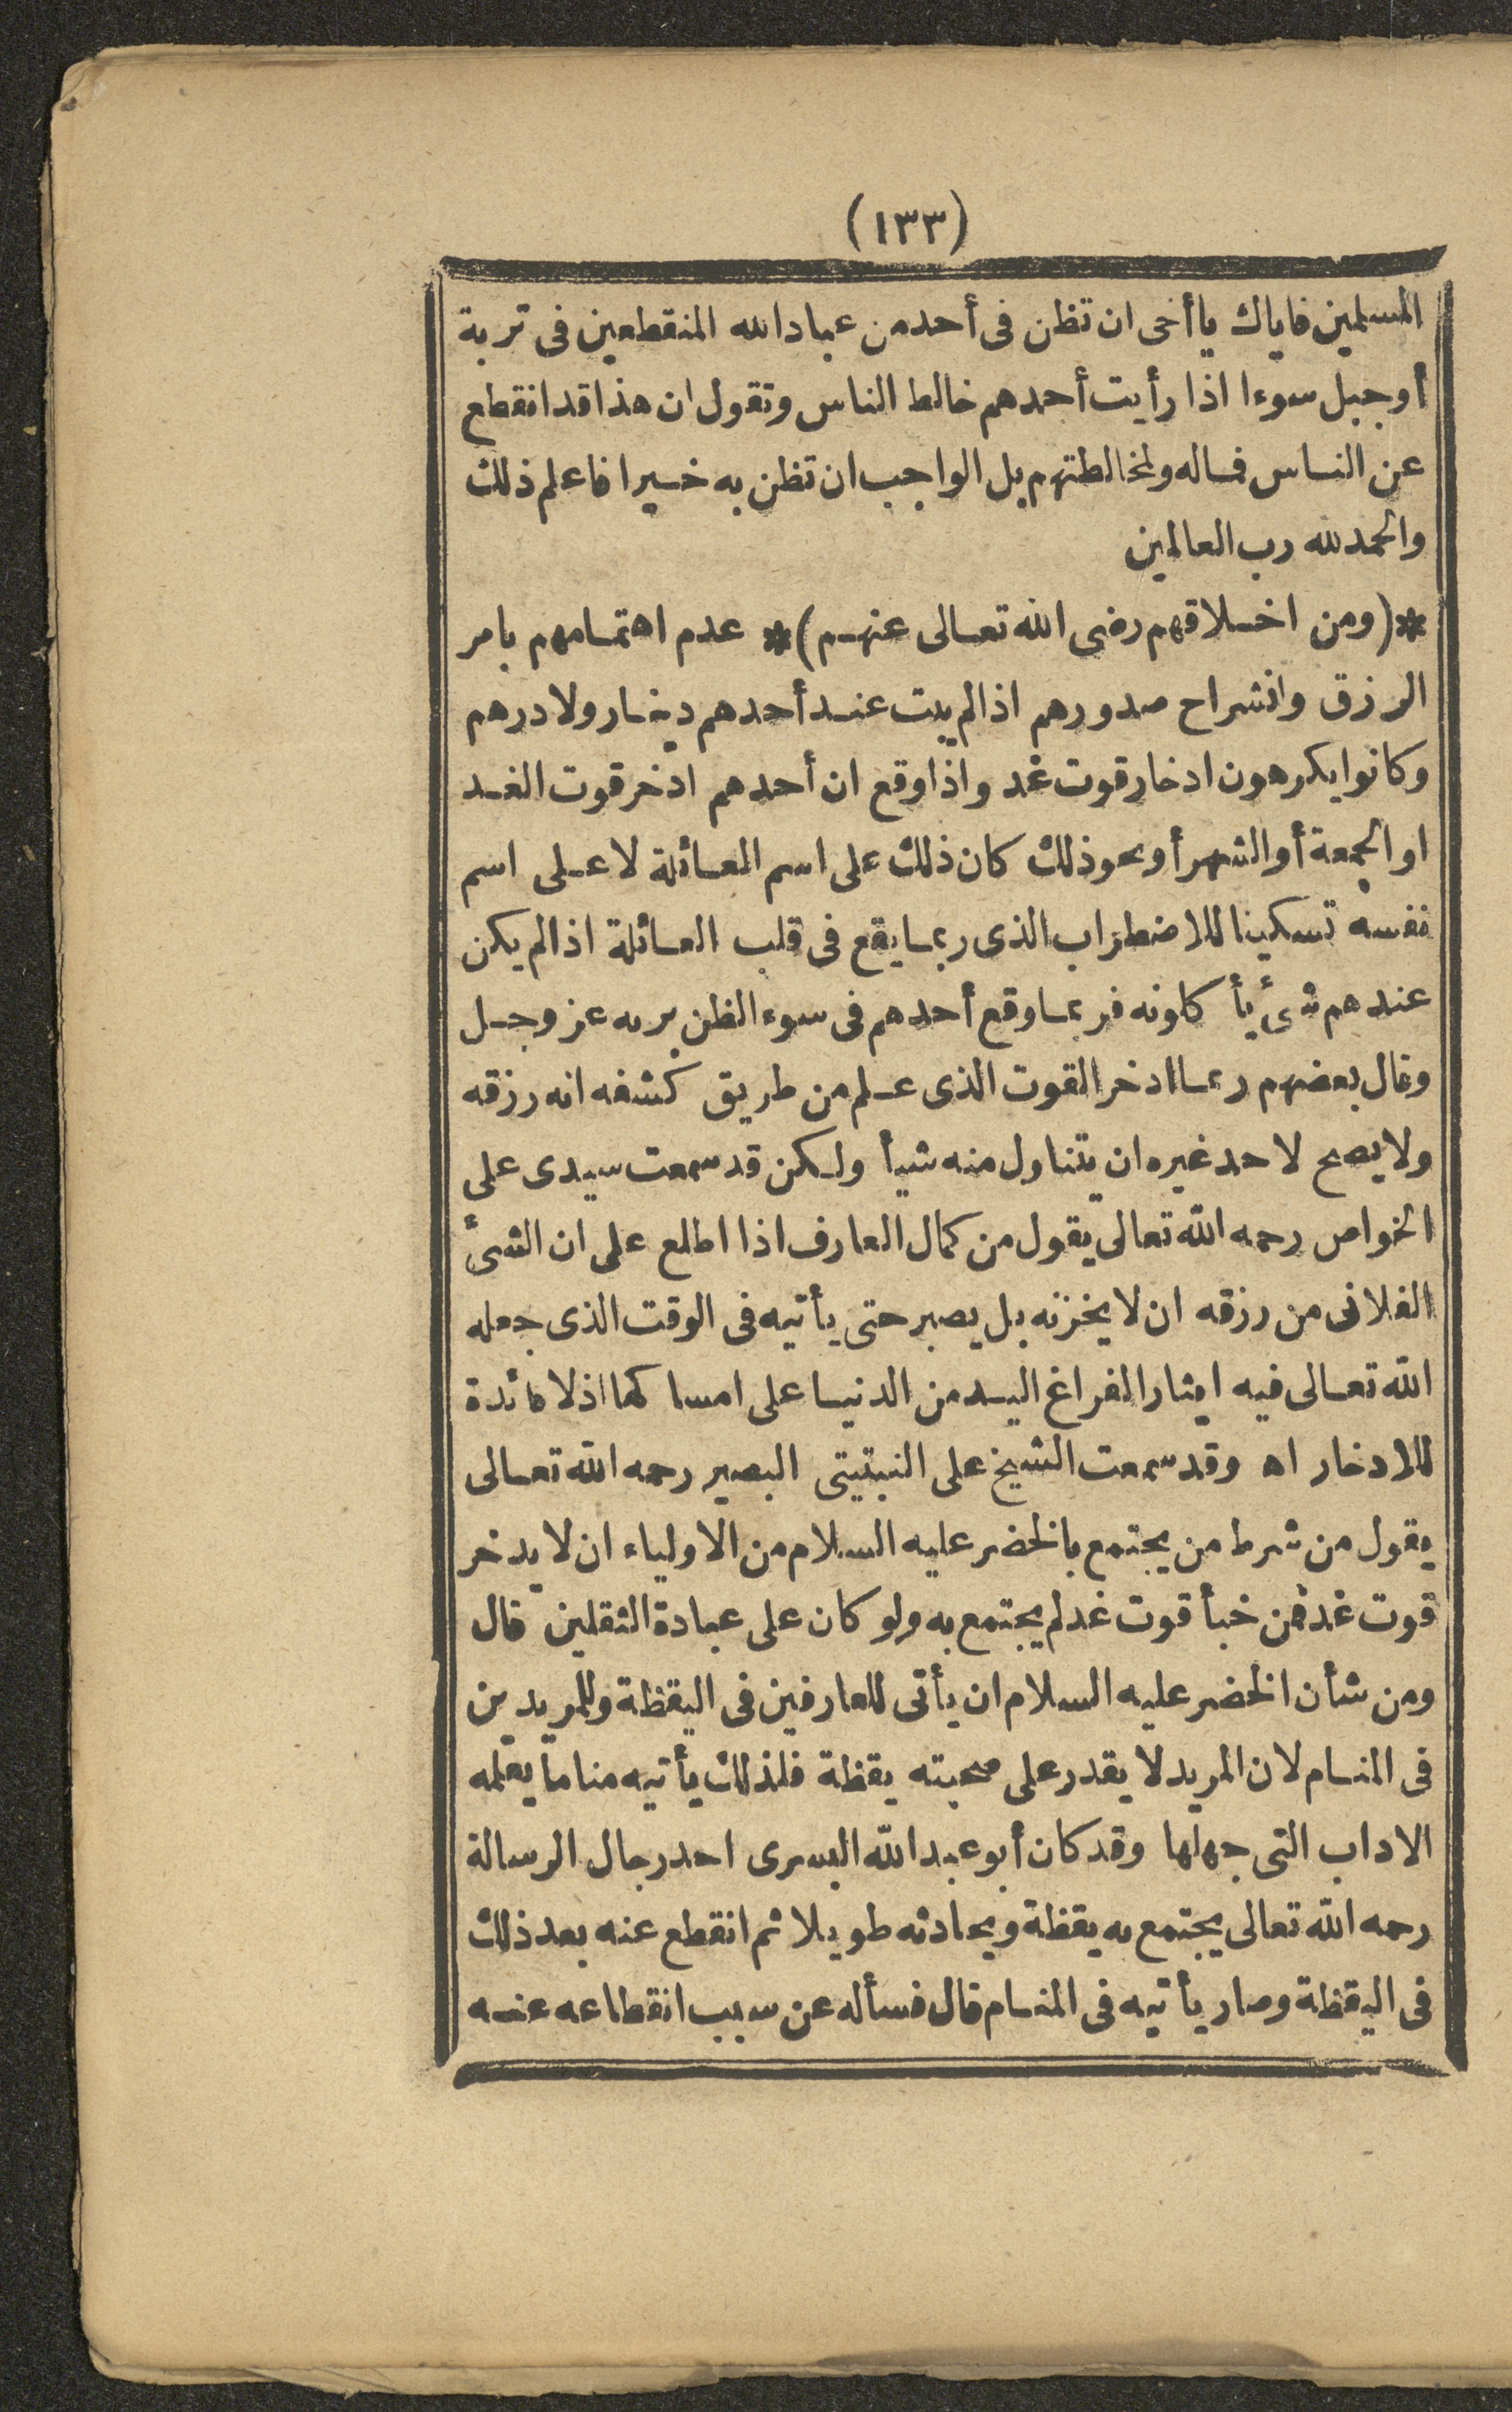 (١٣٣)
المسلمين فاياك ياأخى ان تظن فى أحد من عباد الله المنقطعين فى تربة
أو جبل سوءا اذا رأيت أحدهم خالط الناس وتقول ان هذا قد انقطع
عن الناس فماله ولمخالطتهم بل الواجب ان تظن به خيرا فاعلم ذلك
والحمد لله رب العالمين
*(ومن اخلاقهم رضى الله تعالى عنهم)* عدم اهتمامهم بامر
الرزق وانشراح صدورهم اذا لم يبت عند أحدهم دينار ولا درهم
وكانوا يكرهون ادخار قوت غد واذا وقع ان أحدهم ادخر قوت الغد
او الجمعة أو الشهر أو نحو ذلك كان ذلك على اسم العائلة لا على اسم
نفسه تسكينا للاضطراب الذى ربما يقع فى قلب العائلة اذا لم يكن
عندهم شئ يأكلونه فربما وقع أحدهم فى سوء الظن بربه عز وجل
وقال بعضهم ربما ادخر القوت الذى علم من طريق كشفه انه رزقه
ولا يصح لاحد غيره ان يتناول منه شيأ ولكن قد سمعت سيدى على
الخواص رحمه الله تعالى يقول من كمال العارف اذا اطلع على ان الشئ
الفلانى من رزقه ان لا يخزنه بل يصبر حتى يأتيه فى الوقت الذى جعله
الله تعالى فيه ايثارا لفراغ اليد من الدنيا على امساكها اذ لا فائدة
للادخار اه وقد سمعت الشيخ على النبتيتى البصير رحمه الله تعالى
يقول من شرط من يجتمع بالخضر عليه السلام من الاولياء ان لا يدخر
قوت غد فمن خبأ قوت غد لم يجتمع به ولو كان على عبادة الثقلين قال
ومن شأن الخضر عليه السلام ان يأتى للعارفين فى اليقظة وللمريدين
فى المنام لان المريد لا يقدر على صحبته يقظة فلذلك يأتيه مناما يعلمه
الاداب التى جهلها وقد كان أبو عبد الله البسرى احد رجال الرسالة
رحمه الله تعالى يجتمع به يقظة ويحادثه طويلا ثم انقطع عنه بعد ذلك
فى اليقظة وصار يأتيه فى المنام قال فسأله عن سبب انقطاعه عنه